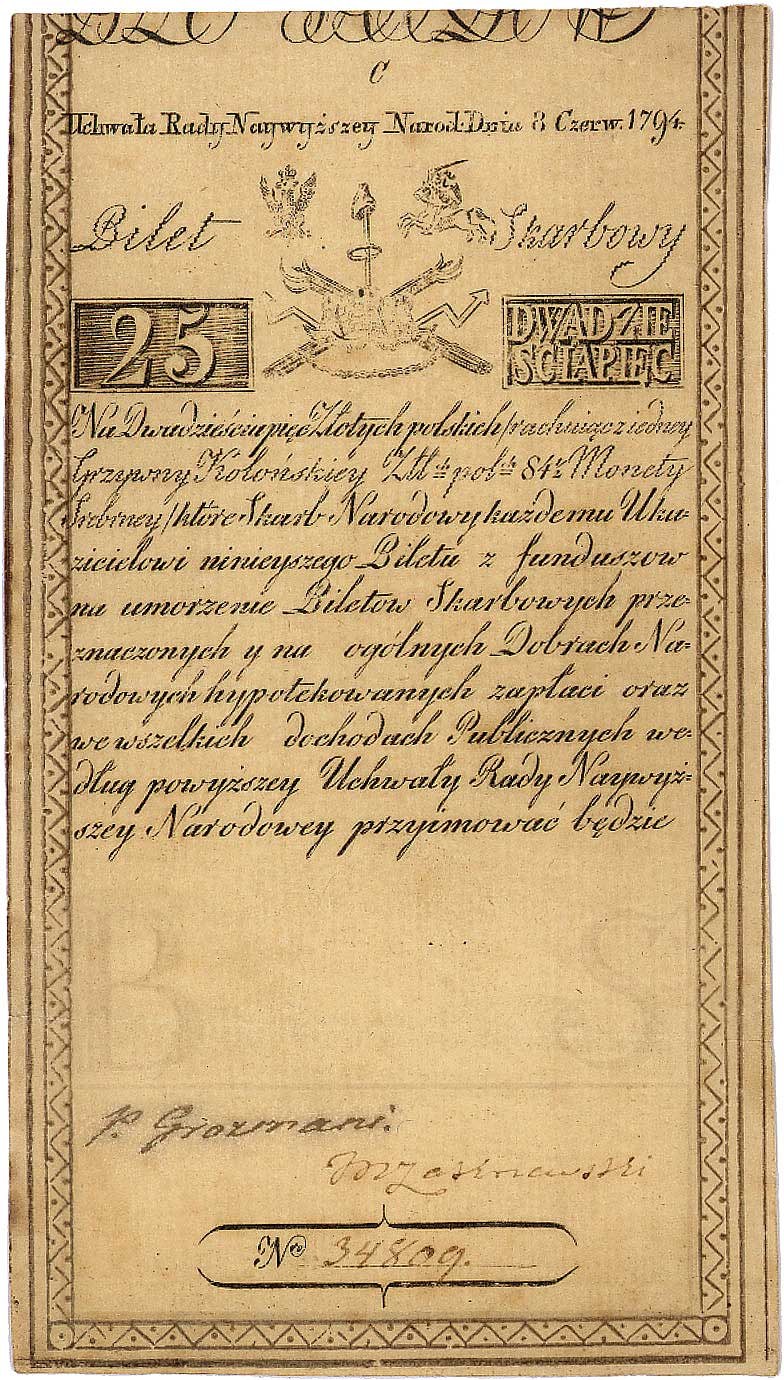 C
Uchwała Rady Naywyższey Narod. Dnia 8 Czerw. 1794.
Bilet Skarbowy
25 DWADZIE
ŚCIAPIĘĆ
Na Dwadzieściapięć Złotych polskich /rachuiąc z iedney
Grzywny Kolońskiey Złł.ch pol.ch 84.r Monety
Srebrney/ które Skarb Narodowy każdemu Uka-
zicielowi ninieyszego Biletu z funduszow
na umorzenie Biletow Skarbowych prze-
znaczonych y na ogólnych Dobrach Na-
rodowych hypotekowanych zapłaci oraz
we wszelkich dochodach Publicznych we-
dług powyższey Uchwały Rady Naywyż-
szey Narodowey przyimować będzie
B S
P. Grozmani.
No 34809.